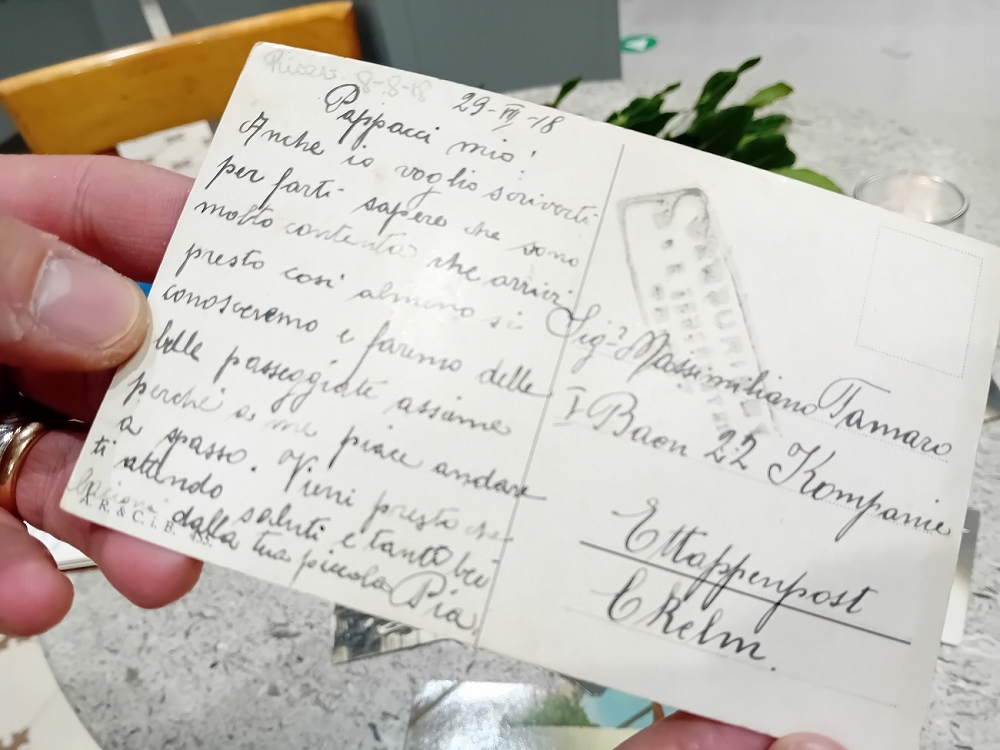 8-8-18
29-VII-18
Pappacci mio!
Anche io voglio scriverti
per farti sapere che sono
molto contenta che arrivi
presto cosi almeno si
conosceremo e faremo delle
belle passeggiate assieme
perchè a me piace andare
a spasso. Vieni presto che
ti attendo saluti e tanti baci
dalla tua piccola Pia
A. R. & C. i. B.
Sigr Massimiliano Tamaro
I Baon 22 Kompanie
Ettappenpost
Chelm.